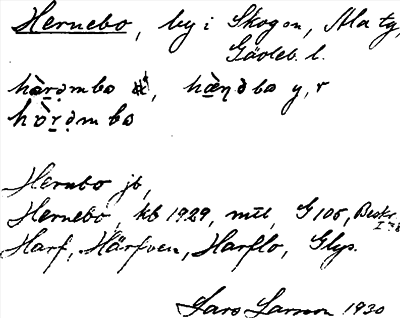 Hernebo, by i Skog sn, Ala tg,
Gävleb. l.
hà̱r̠ə̣mbo, hæ̱̀ṇəbo y, r
hòr̠ə̣mbo
Hernbo jb,
Hernebo, kb 1929, mtl, G 106, Beskr.
Harf, Härfven, Harflo, Glys.
Lars Larsson 1930